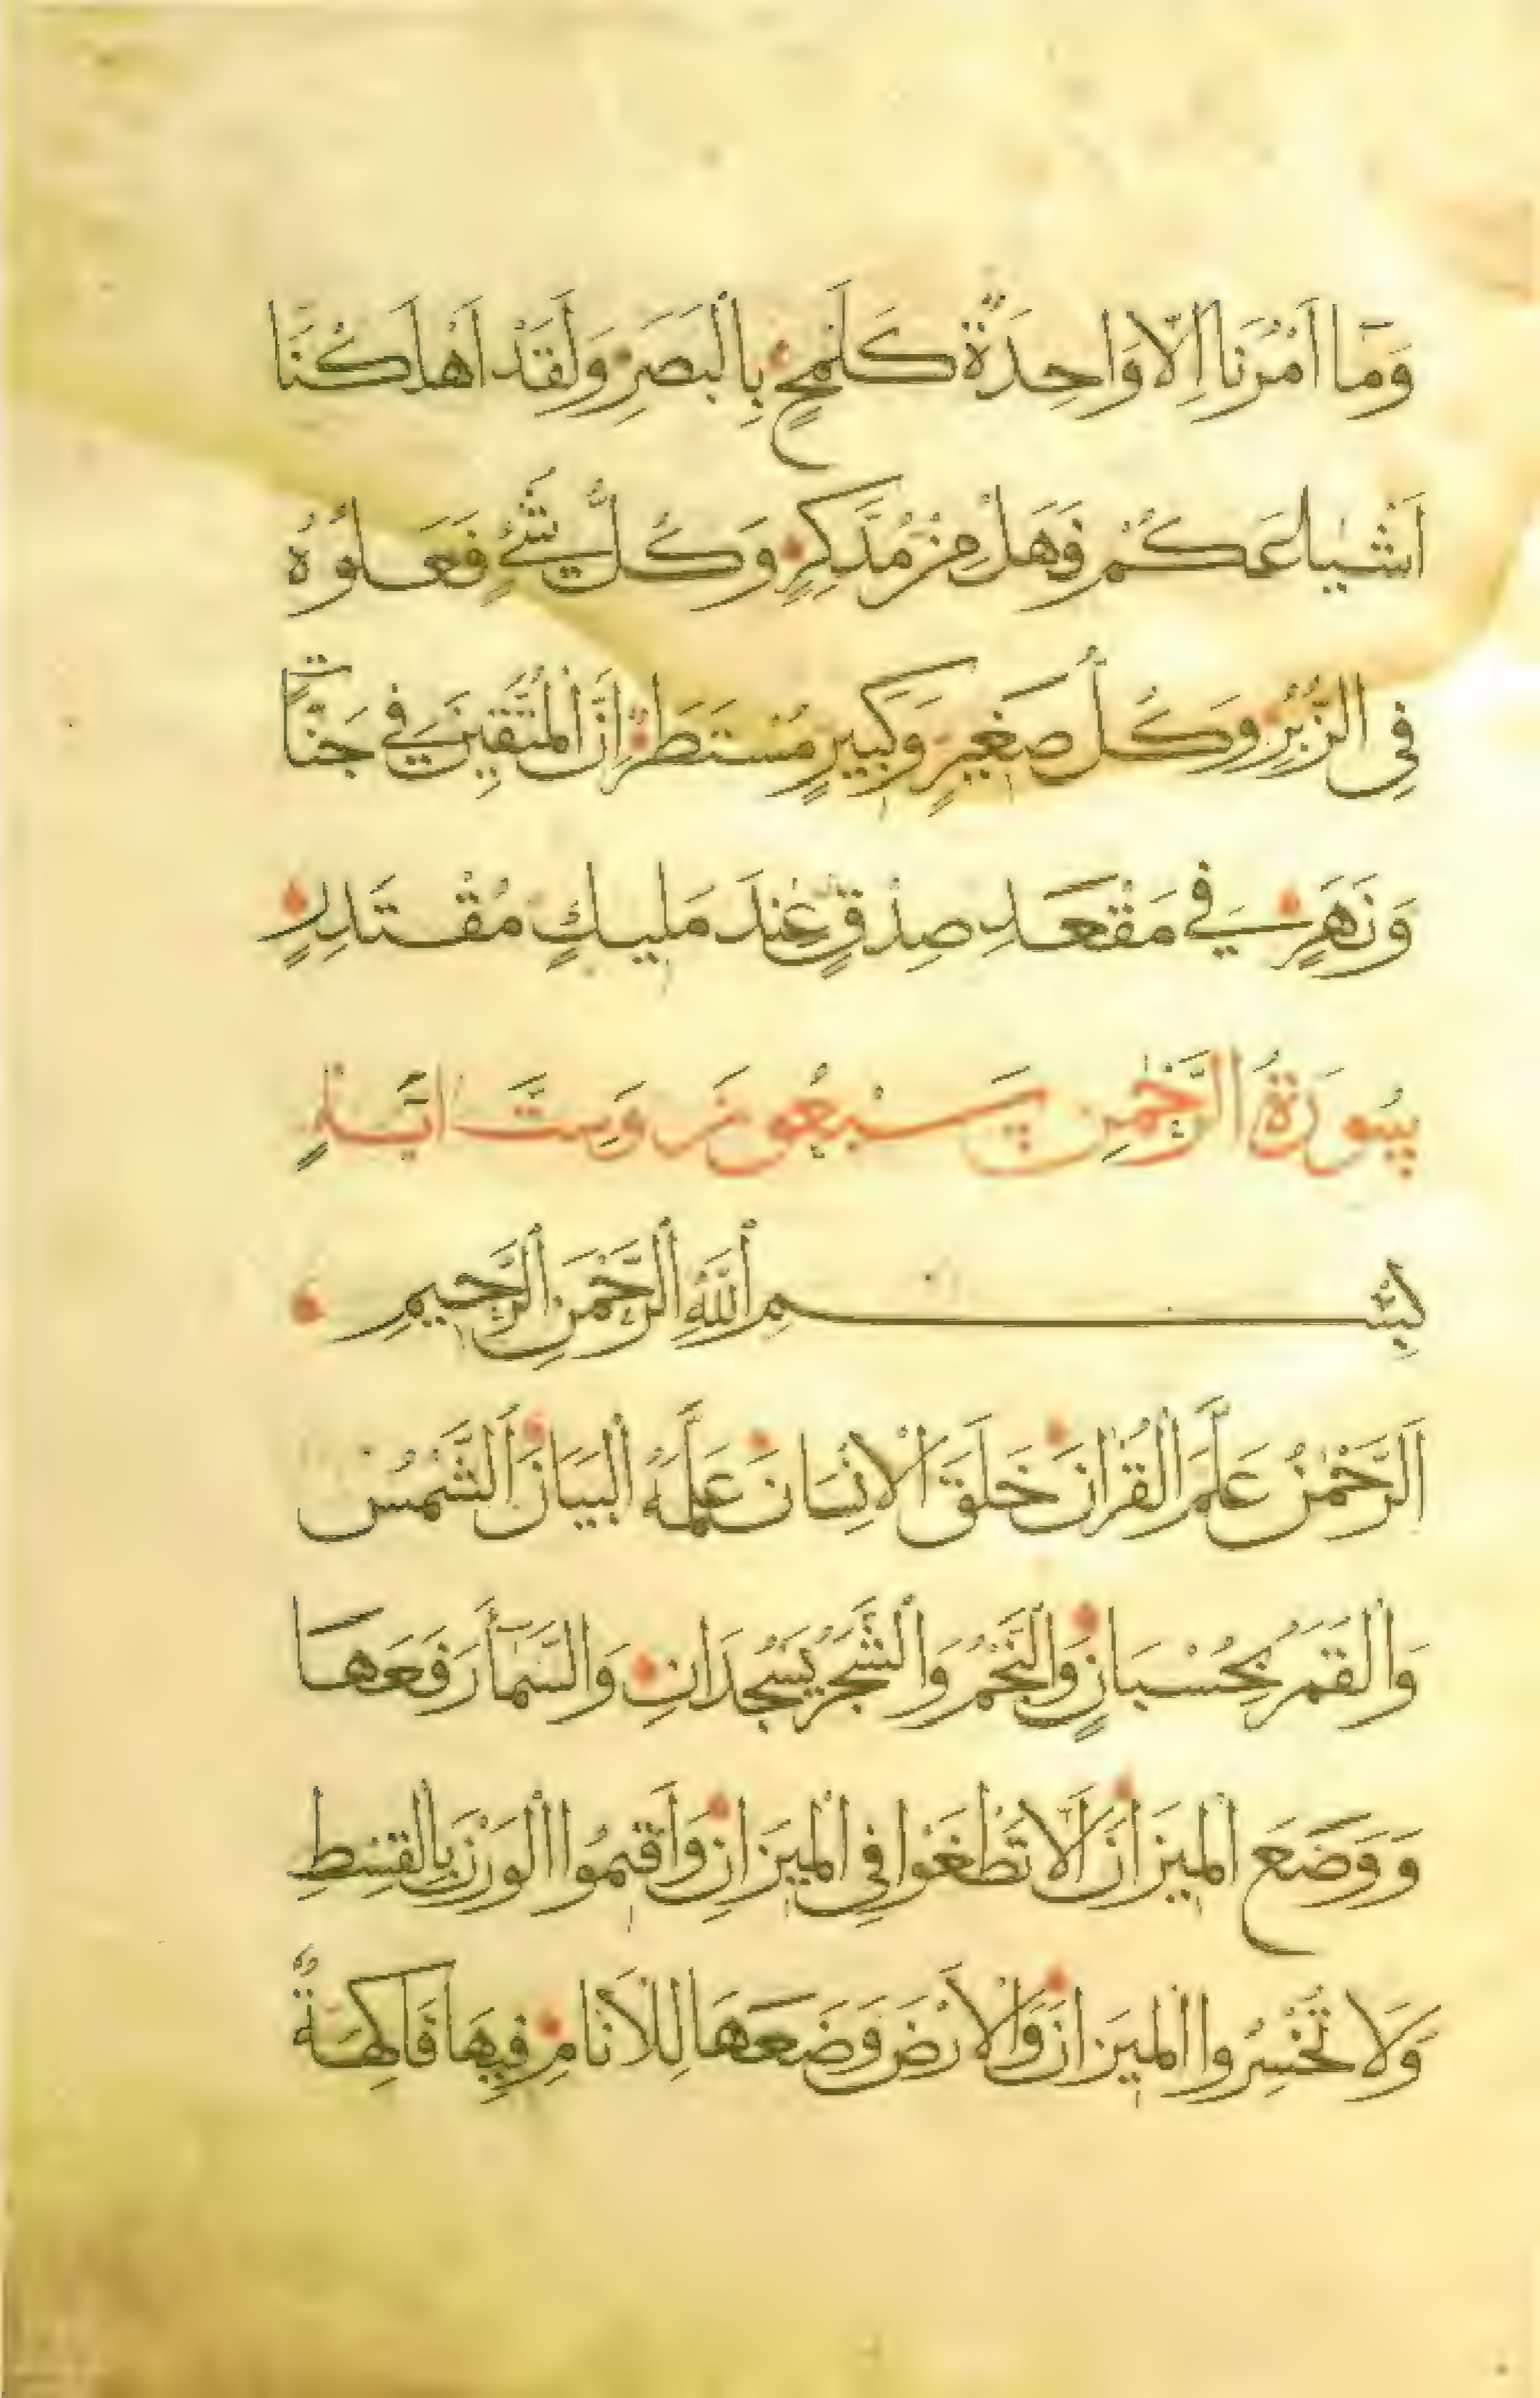 وَمَا اَمْرُنَا اِلَّا وَاحِدَةٌ كَلَمْحٍ بِالْبَصَرِ وَلَقَدْ اَهْلَكْنَا
اَشْيَاعَكُمْ فَهَلْ مِنْ مُدَّكِرٍ وَكُلُّ شَيْءٍ فَعَلُوهُ
فِي الزُّبُرِ وَكُلُّ صَغِيرٍ وَكَبِيرٍ مُسْتَطَرٌ اِنَّ الْمُتَّقِينَ فِي جَنَّاتٍ
وَنَهَرٍ فِي مَقْعَدِ صِدْقٍ عِنْدَ مَلِيكٍ مُقْتَدِرٍ
سُورَةُ الرَّحْمٰنِ سَبْعُونَ وَسِتُّ اٰيَةٍ
بِسْمِ اللَّهِ الرَّحْمٰنِ الرَّحِيمِ
اَلرَّحْمٰنُ عَلَّمَ الْقُرْاٰنَ خَلَقَ الْاِنْسَانَ عَلَّمَهُ الْبَيَانَ اَلشَّمْسُ
وَالْقَمَرُ بِحُسْبَانٍ وَالنَّجْمُ وَالشَّجَرُ يَسْجُدَانِ وَالسَّمَآءَ رَفَعَهَا
وَوَضَعَ الْمِيزَانَ اَلَّا تَطْغَوْا فِي الْمِيزَانِ وَاَقِيمُوا الْوَزْنَ بِالْقِسْطِ
وَلَا تُخْسِرُوا الْمِيزَانَ وَالْاَرْضَ وَضَعَهَا لِلْاَنَامِ فِيهَا فَاكِهَةٌ